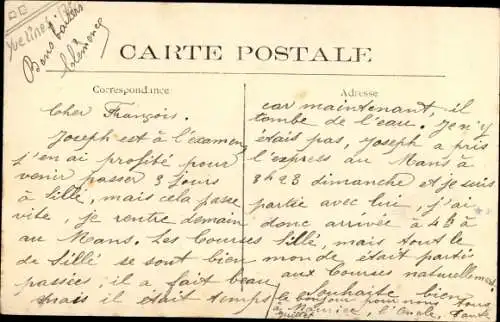 Yvelines
Bons baisers
Clémence
CARTE POSTALE
Correspondance
Adresse
Cher François.
Joseph est à l'examen,
j'en ai profité pour
venir passer 3 jours
à Sillé, mais cela passe
vite, je rentre demain
au Mans. Les Courses
de Sillé se sont bien
passées, il a fait beau
mais il était temps
car maintenant, il
tombe de l'eau. Je n'y
étais pas, Joseph a pris
l'express au Mans à
3h23 dimanche et je suis
partie avec lui, j'ai
donc arrivée à 4h à
Sillé, mais tout le
monde était parti
aux Courses naturellement.
Souhaite bien
le bonjour pour nous tous
à Maurice, l'Oncle, Tante